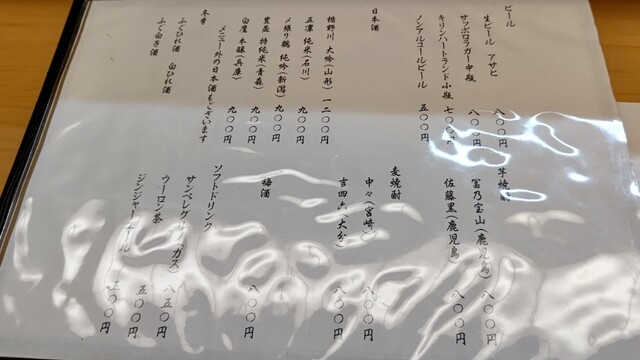 ビール
生ビール アサヒ 八〇〇円
サッポロラガー中瓶 八〇〇円
キリンハートランド小瓶 七〇〇円
ノンアルコールビール 五〇〇円
日本酒
楯野川 大吟(山形) 一二〇〇円
五凛 純米(石川) 九〇〇円
〆張り鶴 純吟(新潟) 九〇〇円
豊盃 特純米(青森) 九〇〇円
白鷹 本醸(兵庫) 九〇〇円
メニュー外の日本酒もございます
冬季
ふぐひれ酒 白ひれ酒
ふぐ白子酒
芋焼酎
富乃宝山(鹿児島) 八〇〇円
佐藤黒(鹿児島) 八〇〇円
麦焼酎
中々(宮崎) 八〇〇円
吉四六(大分) 八〇〇円
梅酒 八〇〇円
ソフトドリンク
サンペレグリノ(ガス) 八五〇円
ウーロン茶 五〇〇円
ジンジャーエール 五〇〇円